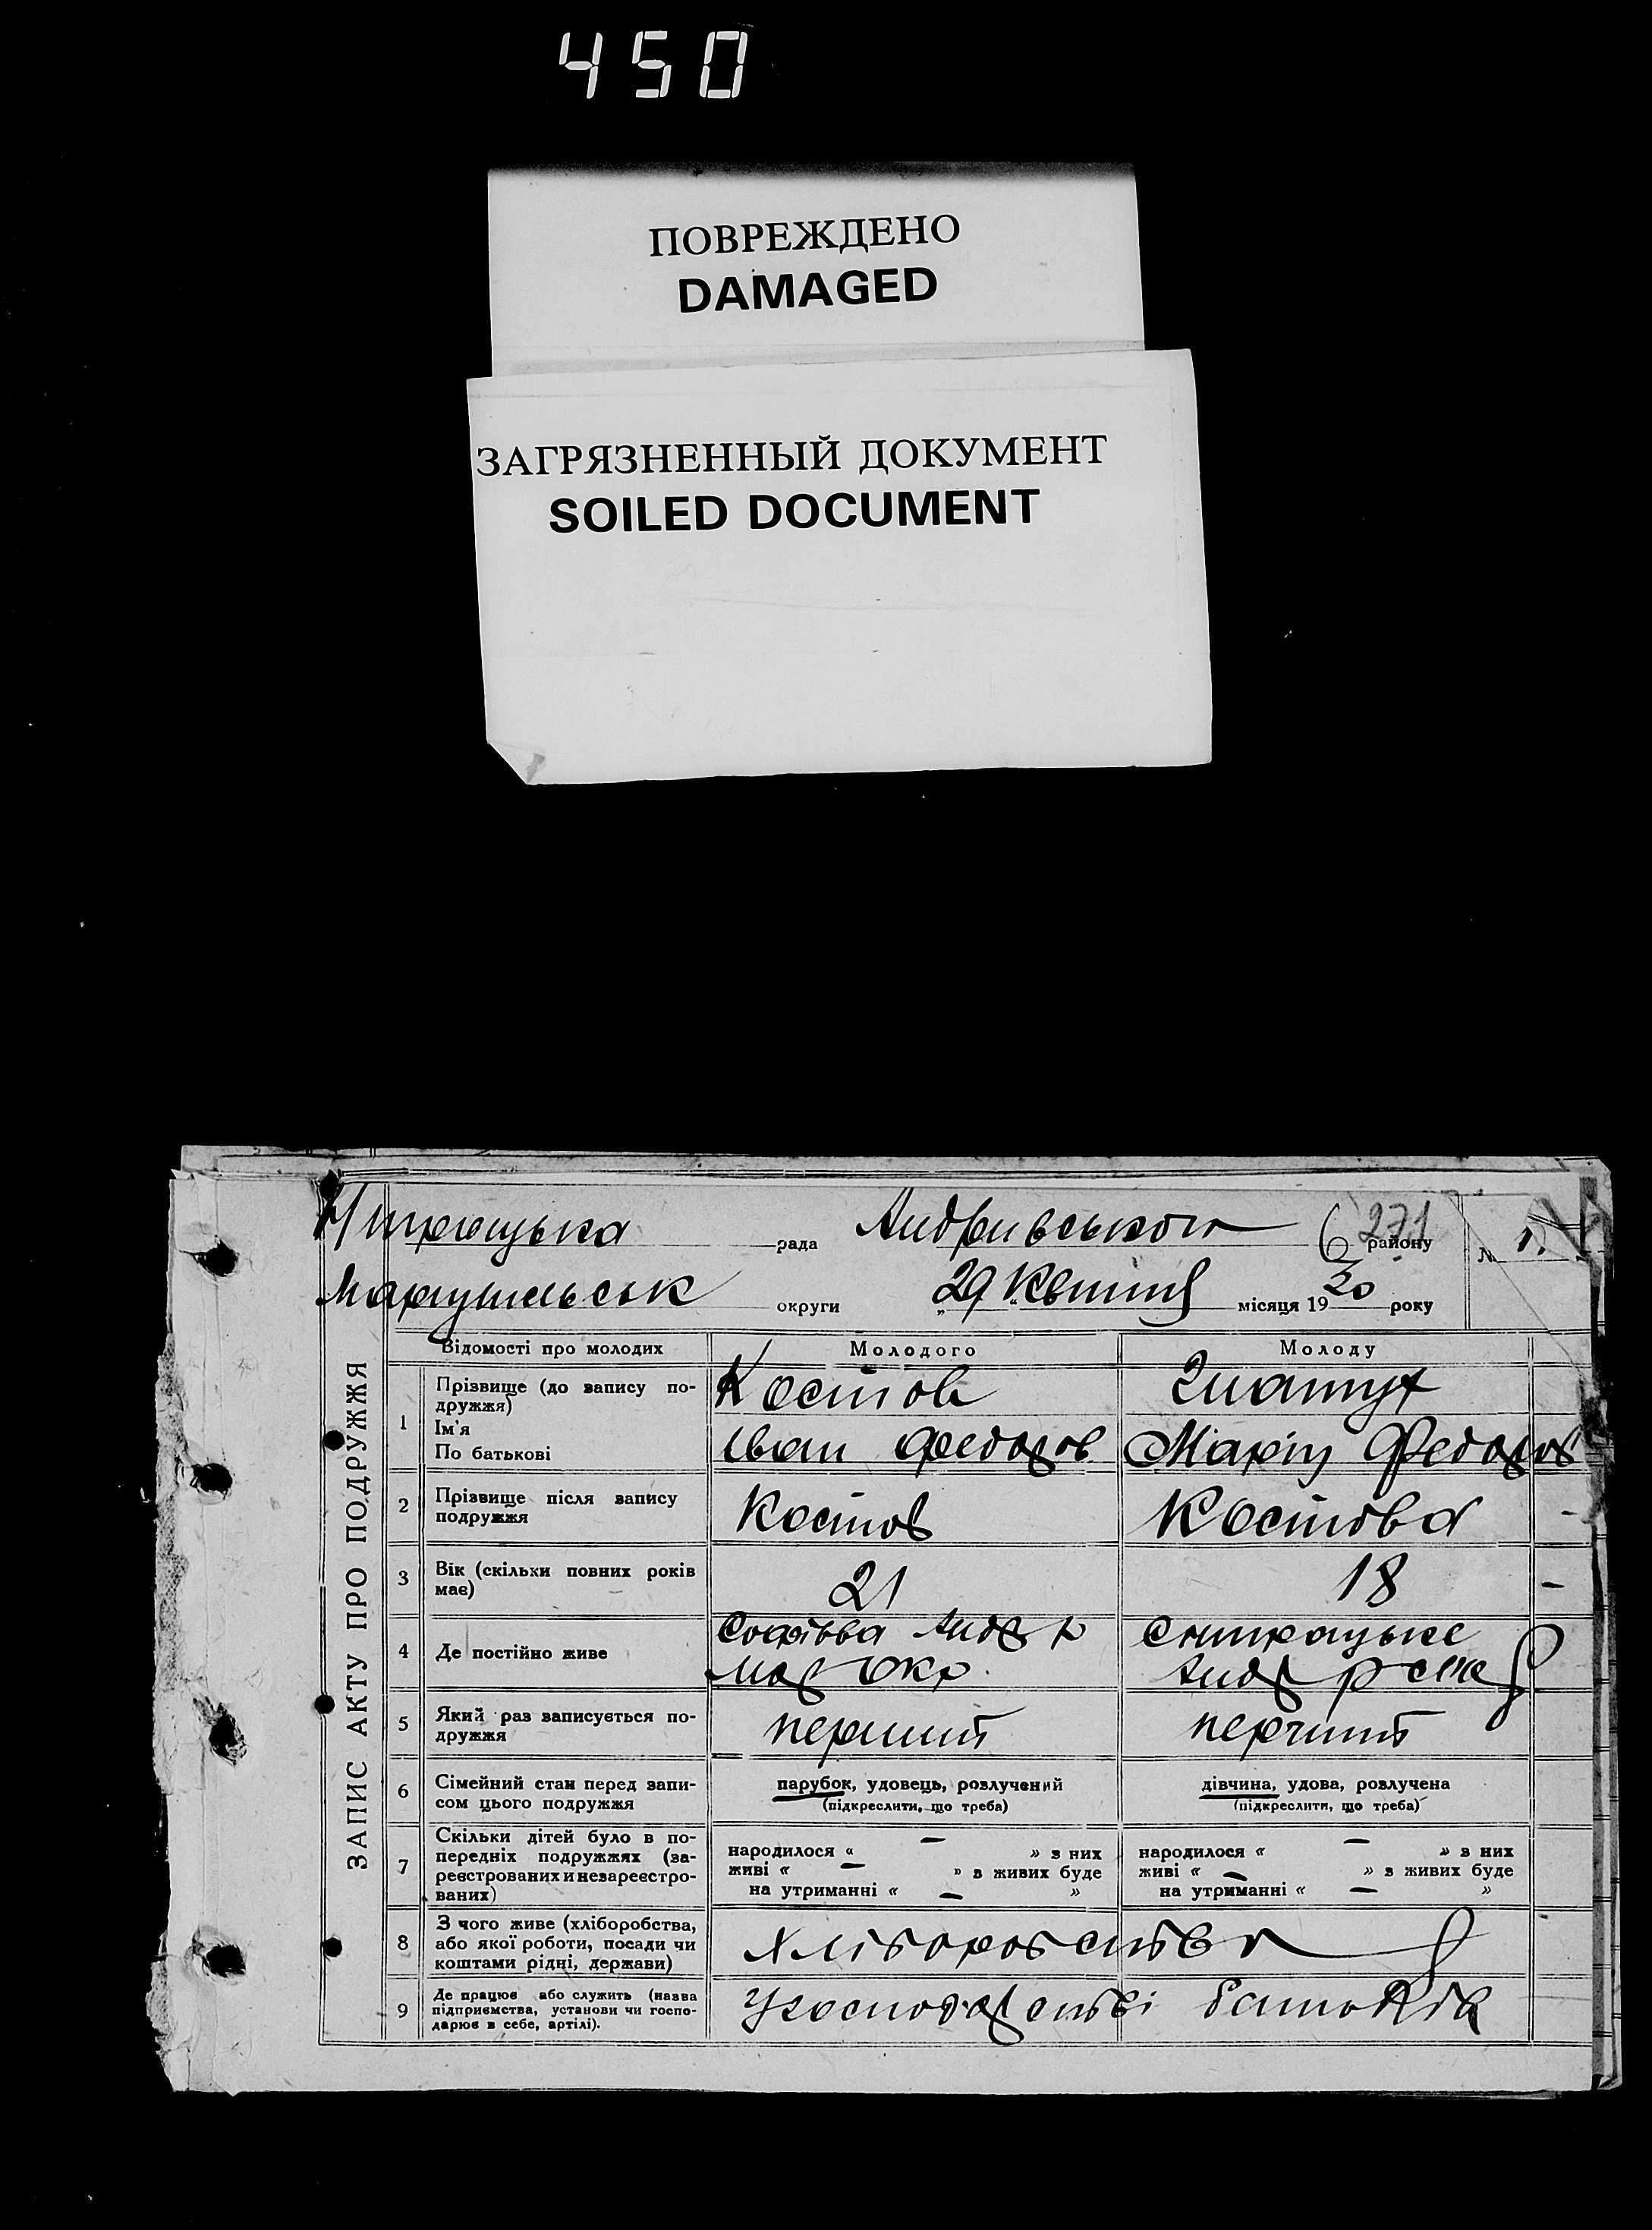 450
ПОВРЕЖДЕНО
DAMAGED
ЗАГРЯЗНЕННЫЙ ДОКУМЕНТ
SOILED DOCUMENT
рада
271
району
№ 1.
округи
„29 “ місяця 1930 року
ЗАПИС АКТУ ПРО ПОДРУЖЖЯ
Відомості про молодих
Молодого
Молоду
1
Прізвище (до запису по-
дружжя)
Ім'я
По батькові
Костов
Іван Федоров
Федоров
2
Прізвище після запису
подружжя
Костов
Костова
-
3
Вік (скільки повних років
має)
21
18
-
4
Де постійно живе
5
Який раз записується по-
дружжя
перший
перший
6
Сімейний стан перед запи-
сом цього подружжя
парубок, удовець, розлучений
(підкреслити, що треба)
дівчина, удова, розлучена
(підкреслити, що треба)
7
Скільки дітей було в по-
передніх подружжях (за-
реєстрованих и незареєстро-
ваних)
народилося « — » з них
живі « — » з живих буде
на утриманні « — »
народилося « — » з них
живі « — » з живих буде
на утриманні « — »
8
З чого живе (хліборобства,
або якої роботи, посади чи
коштами рідні, держави)
Хліборобства
9
Де працює або служить (назва
підприємства, установи чи госпо-
дарює в себе, артілі).
У господарстві батьків